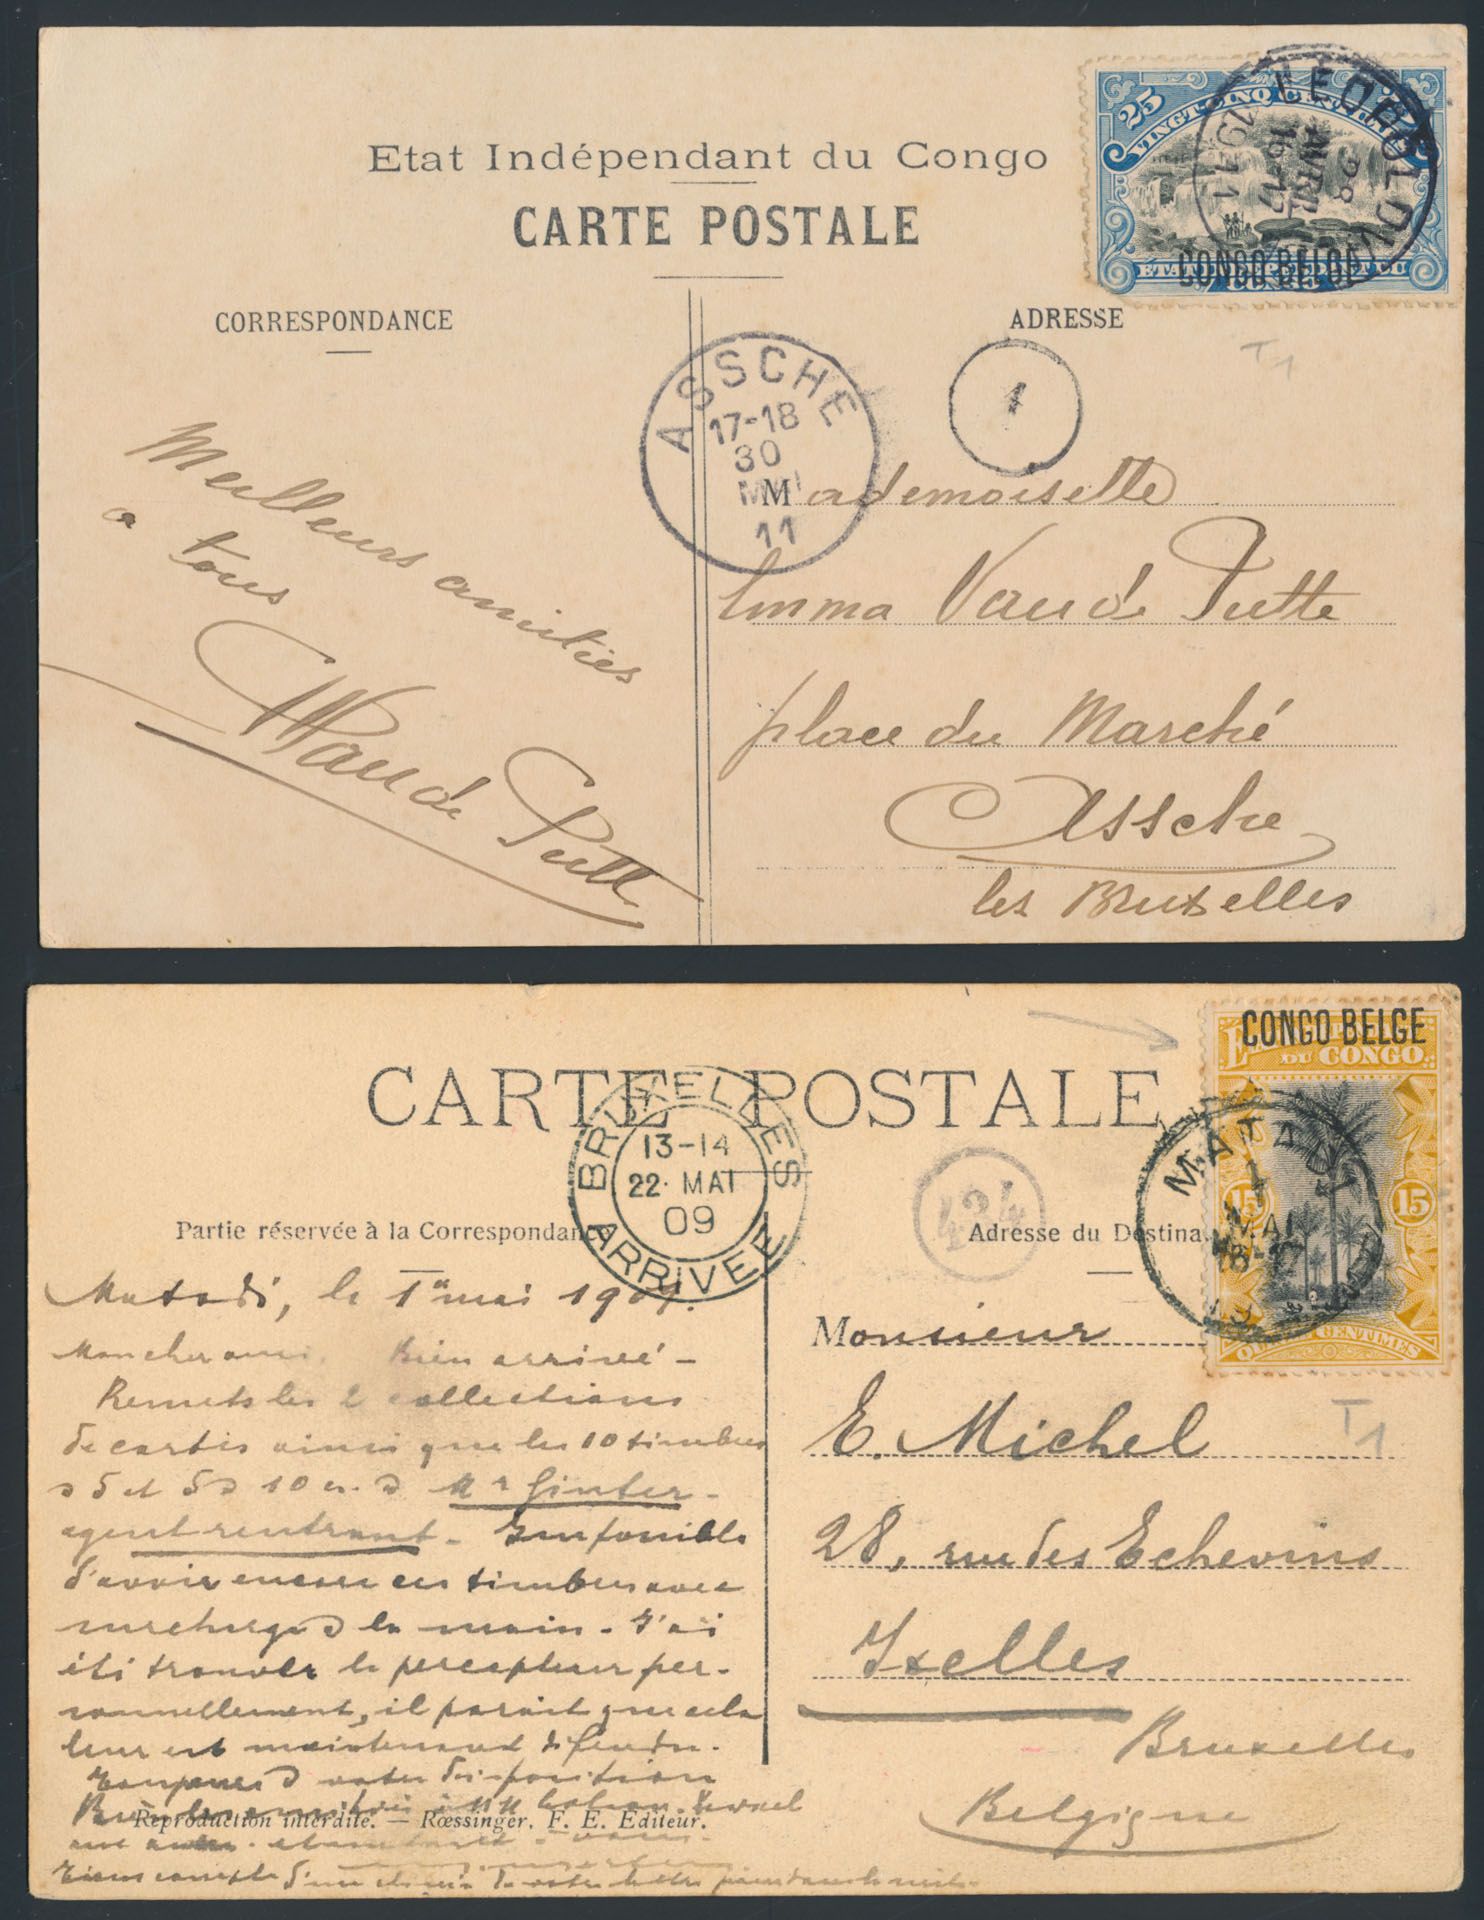 Etat Indépendant du Congo
CARTE POSTALE
CORRESPONDANCE
ADRESSE
25
VINGT-CINQ CENTIMES
CONGO BELGE
LEOPOLDV
28
AVRIL
16-17
1911
T1
1
ASSCHE
17-18
30
MAI
11
Meilleurs amitiés
a tous
Van de Putte
Mademoiselle
Emma Van de Putte
place du Marché
Assche
lez Bruxelles
CARTE POSTALE
CONGO BELGE
DU CONGO
15
15
CENTIMES
MATADI
1
MAI
BRUXELLES
13-14
22· MAI
09
ARRIVEE
424
Partie réservée à la Correspondance
Adresse du Destina
Matadi, le 1er mai 1909.
Mon cher ami. Bien arrivé -
Remets les 2 collections
de cartes ainsi que les 10 timbres
à 5 et 5 à 10 cs. à Mr Ginter -
agent rentrant - Impossible
d'avoir encore ces timbres avec
surcharge à la main - J'ai
été trouver le percepteur per-
sonnellement, il parait que cela
leur est maintenant défendu.
Toujours à votre disposition
Reproduction interdite. — Rœssinger, F. E. Editeur.
Monsieur
E. Michel
T1
28, rue des Echevins
Ixelles
Bruxelles
Belgique